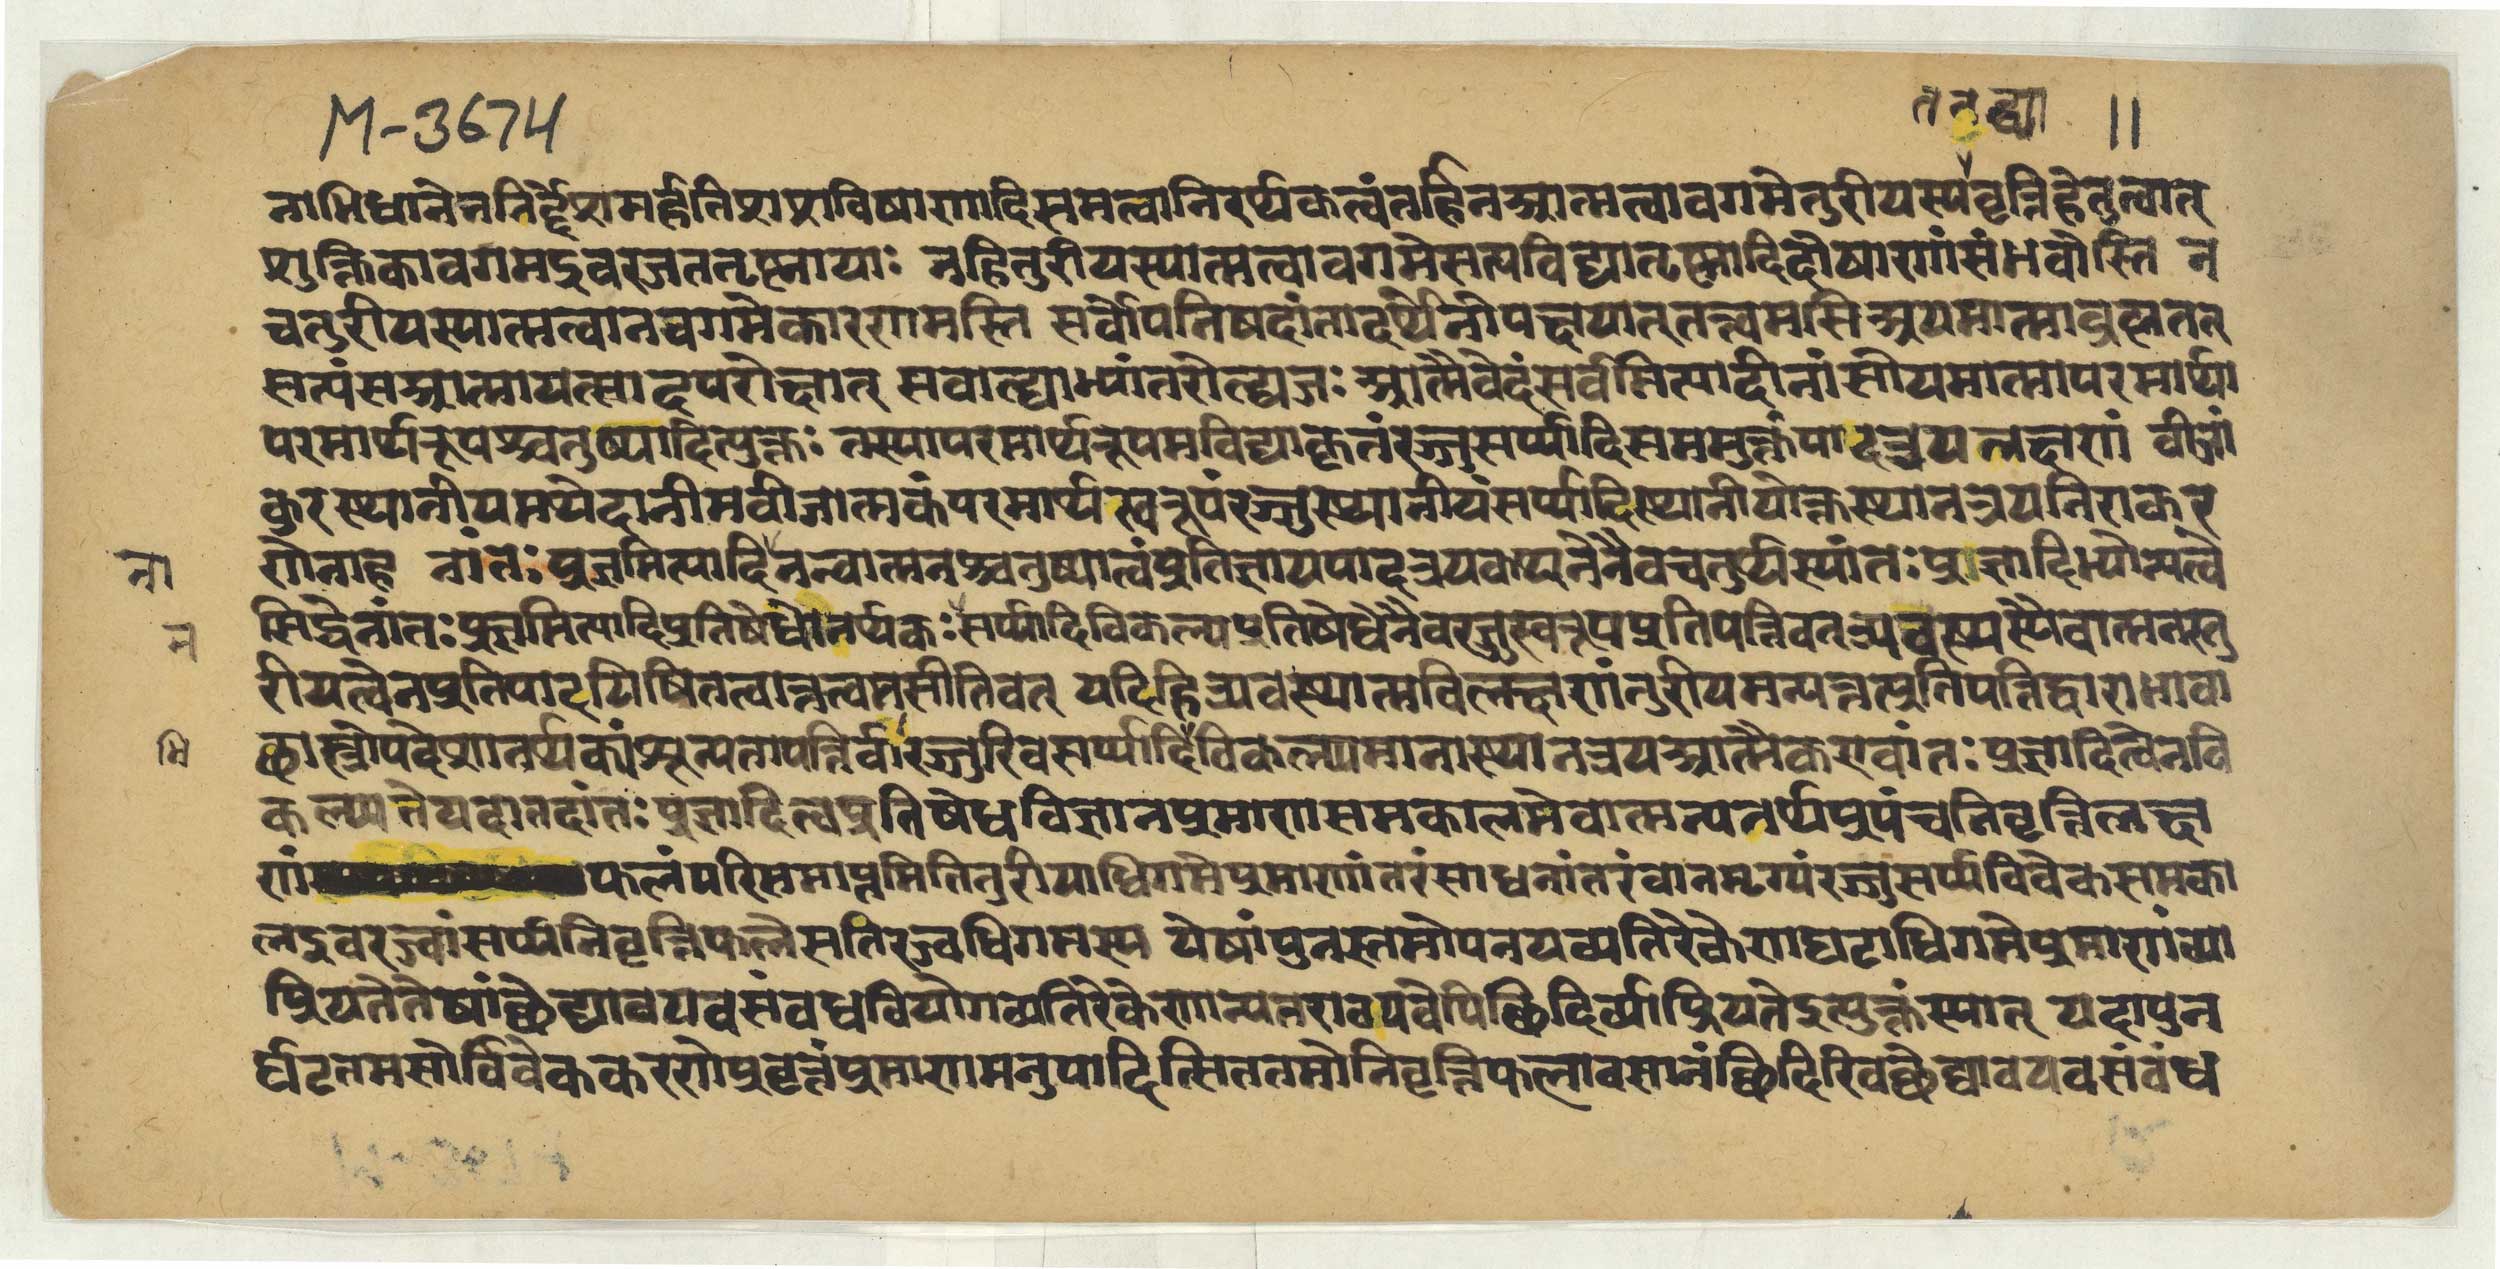 M-3674
तत्रृद्ध्या ॥
नाभिधानेननिर्द्देशमर्हतिशशविषाणादिसमत्वान्निरर्थकत्वंतर्हिनआत्मत्वावगमेतुरीयस्यवृत्तिहेतुत्वात्
शुक्तिकावगमइवरजततृष्णायाः नहितुरीयस्यात्मत्वावगमेसत्यविद्यातृष्णादिदोषाणांसंभवोस्ति न
चतुरीयस्यात्मत्वानवगमेकारणमस्ति सर्वोपनिषदांतादर्थ्येनोपक्षयात्तत्त्वमसिअयमात्माब्रह्मतत्
सत्यंसआत्मायत्साक्षादपरोक्षात् सवाह्याभ्यांतरोह्यजः आत्मैवेदंसर्वमित्यादीनांसोयमात्मापरमार्था
परमार्थरूपश्चतुष्पादित्युक्तः तस्यापरमार्थरूपमविद्याकृतंरज्जुसर्पादिसममुक्तंपादत्रयलक्षणं वीजां
कुरस्थानीयमथेदानीमवीजात्मकंपरमार्थस्वरूपंरज्जुस्थानीयंसर्पादिस्थानीयोक्तस्थानत्रयनिराकर
णेनाह नांतःप्रज्ञमित्यादिनन्वात्मनश्चतुष्पात्वंप्रतिज्ञायपादत्रयकथनेनैवचतुर्थस्यांतःप्रज्ञादिभ्योन्यत्वे
सिद्धेनांतःप्रज्ञमित्यादिप्रतिषेधोनर्थकःसर्पादिविकल्पप्रतिषेधेनैवरज्जुस्वरूपप्रतिपत्तिवतत्र्यवस्थस्यैवात्मनस्तु
रीयत्वेनप्रतिपादयिषितत्वात्तत्वमसीतिवत् यदिहित्र्यवस्थात्मविलक्षणंतुरीयमन्यत्तत्प्रतिपत्तिद्वाराभावा
छास्त्रोपदेशानर्थकांशून्यतापत्तिर्वारज्जुरिवसर्पादिविकल्प्यमानास्थानत्रयआत्मैकएवांतःप्रज्ञादित्वेनवि
कल्प्यतेयदातदांतःप्रज्ञादित्वप्रतिषेधविज्ञानप्रमाणसमकालमेवात्मन्यनर्थप्रपंचनिवृत्तिलक्ष
णंफलंपरिसमाप्तमितितुरीयाधिगमेप्रमाणांतरंसाधनांतरंवानमृग्यंरज्जुसर्पविवेकसमका
लइवरज्वांसर्पनिवृत्तिफलेसतिरज्वधिगमस्य येषांपुनस्तमोपनयव्यतिरेकेणघटाधिगमेप्रमाणंव्या
प्रियतेतेषांछेद्यावयवसंवधवियोगव्यतिरेकेणान्यतरावयवेपिछिदिर्व्याप्रियतेइत्युक्तंस्यात् यदापुन
र्घटतमसोर्विवेककरणेप्रवृत्तंप्रमाणमनुपादित्सिततमोनिवृत्तिफलावसानंछिदिरिवछेद्यावयवसंवंध
ना
न
धि